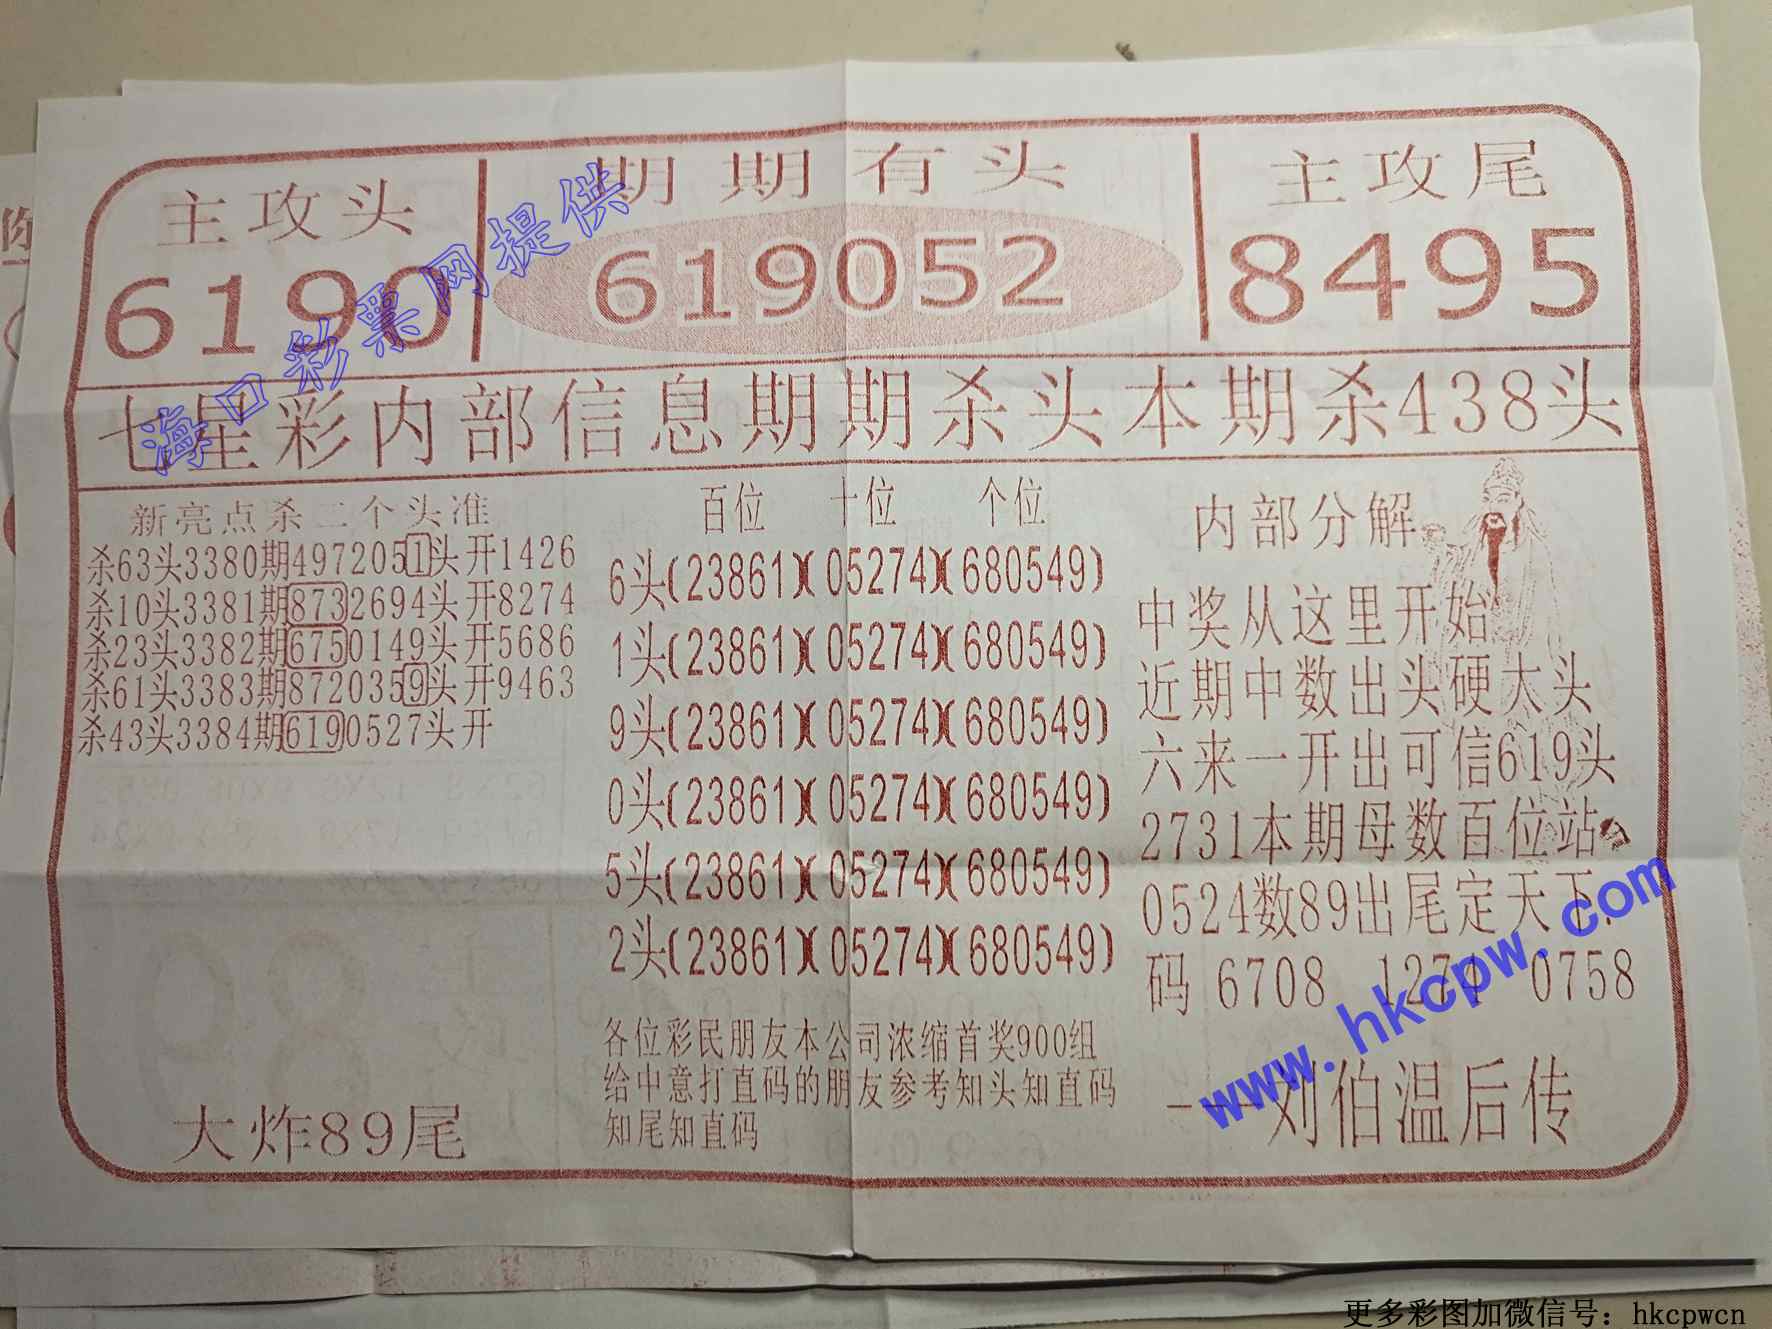 主攻头
期期有头
主攻尾
6190
619052
8495
海口彩票网提供
七星彩内部信息期期杀头本期杀438头
新亮点杀二个头准
杀63头3380期4972051头开1426
杀10头3381期8732694头开8274
杀23头3382期6750149头开5686
杀61头3383期8720359头开9463
杀43头3384期6190527头开
大炸89尾
百位 十位 个位
6头(23861)(05274)(680549)
1头(23861)(05274)(680549)
9头(23861)(05274)(680549)
0头(23861)(05274)(680549)
5头(23861)(05274)(680549)
2头(23861)(05274)(680549)
各位彩民朋友本公司浓缩首奖900组
给中意打直码的朋友参考知头知直码
知尾知直码
内部分解
中奖从这里开始
近期中数出头硬太头
六来一开出可信619头
2731本期母数百位站
0524数89出尾定天下
码 6708 1274 0758
---刘伯温后传
www.hkcpw.com
更多彩图加微信号：hkcpwcn